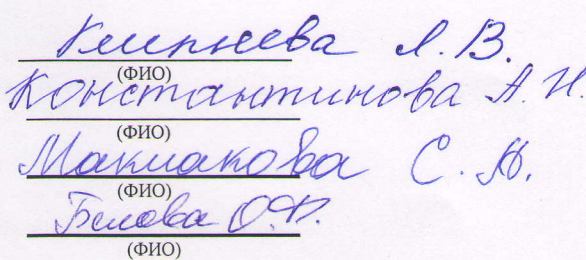 Киркеева Л. В.
(ФИО)
Константинова А. Н.
(ФИО)
Маклакова С. А.
(ФИО)
Белова О.Ф.
(ФИО)